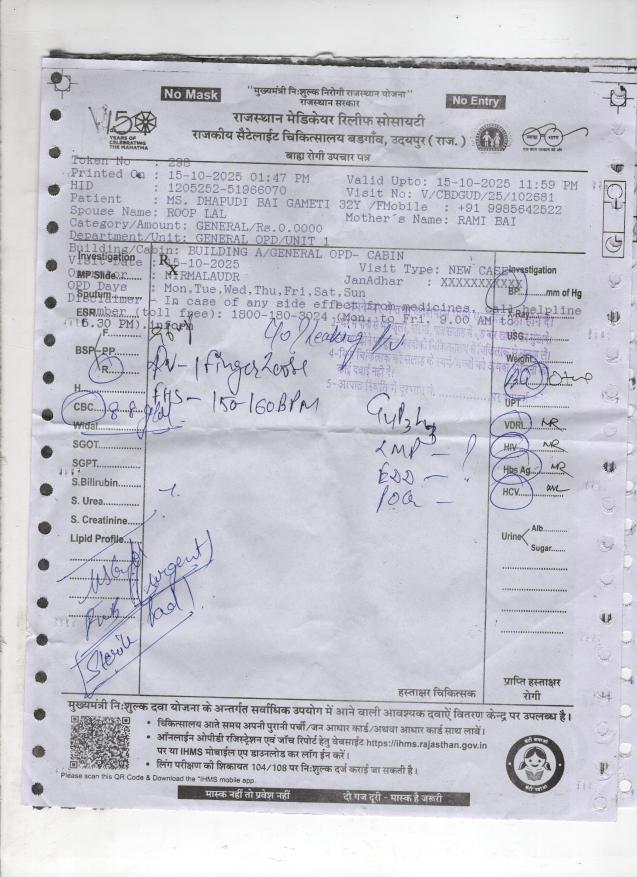 No Mask
"मुख्यमंत्री निःशुल्क निरोगी राजस्थान योजना"
राजस्थान सरकार
No Entry
राजस्थान मेडिकेयर रिलीफ सोसायटी
राजकीय सैटेलाईट चिकित्सालय बडगाँव, उदयपुर ( राज. )
बाह्य रोगी उपचार पत्र
150
YEARS OF
CELEBRATING
THE MAHATMA
Token No : 298
Printed On : 15-10-2025 01:47 PM Valid Upto: 15-10-2025 11:59 PM
HID : 1205252-51966070 Visit No: V/CBDGUD/25/102681
Patient : MS. DHAPUDI BAI GAMETI 32Y /FMobile : +91 9985642522
Spouse Name: ROOP LAL Mother's Name: RAMI BAI
Category/Amount: GENERAL/Rs.0.0000
Department/Unit: GENERAL OPD/UNIT 1
Building/Cabin: BUILDING A/GENERAL OPD- CABIN
Visit Date : 15-10-2025 Visit Type: NEW CASE
Operator : NIRMALAUDR JanAadhar : XXXXXXXXXXX
OPD Days : Mon,Tue,Wed,Thu,Fri,Sat,Sun
Disclaimer - In case of any side effect from medicines, call helpline
number (toll free): 1800-180-3024 (Mon. to Fri. 9.00 AM to
6.30 PM).
Investigation
Rx
Investigation
MP Slide
BP.......mm of Hg
Sputum
X-Ray
ESR
USG
F.
BSP PP.
R.
Weight
H
CBC 8.8 gm
UPT
Widal
VDRL NR
SGOT
HIV NR
SGPT
Hbs Ag NR
S.Bilirubin
HCV NR
S. Urea
S. Creatinine
Urine Alb.
Sugar
Lipid Profile
c/o Leaking PV
PV - 1 finger loose
FHS - 150-160 BPM
LMP - ?
EDD -
POG -
(urgent)
Sterile Pad
हस्ताक्षर चिकित्सक
प्राप्ति हस्ताक्षर
रोगी
मुख्यमंत्री निःशुल्क दवा योजना के अन्तर्गत सर्वाधिक उपयोग में आने वाली आवश्यक दवाऐं वितरण केन्द्र पर उपलब्ध है।
• चिकित्सालय आते समय अपनी पुरानी पर्ची/जन आधार कार्ड/अथवा आधार कार्ड साथ लावें।
• ऑनलाईन ओपीडी रजिस्ट्रेशन एवं जाँच रिपोर्ट हेतु वेबसाईट https://ihms.rajasthan.gov.in
पर या IHMS मोबाईल एप डाउनलोड कर लॉग ईन करें।
• लिंग परीक्षण की शिकायत 104/108 पर निःशुल्क दर्ज कराई जा सकती है।
Please scan this QR Code & Download the "IHMS mobile app.
मास्क नहीं तो प्रवेश नहीं दो गज दूरी - मास्क है जरूरी